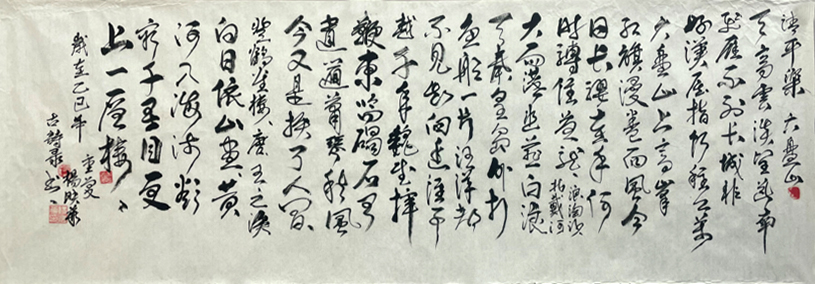 清平樂 六盘山
天高雲淡望断南
飛雁不到长城非
好漢屈指行程二万
六盘山上高峯
红旗漫卷西風今
日长缨在手何
时缚住苍龙
浪淘沙
北戴河
大雨落幽燕白浪
天秦皇岛外打
鱼船一片汪洋都
不见知向谁往事
越千年魏武挥
鞭東临碣石有
遗篇萧瑟秋風
今又是换了人间
登鹳雀楼 唐 王之涣
白日依山盡黄
河入海流欲
穷千里目更
上一層楼
歲在乙巳年
古诗录
重慶